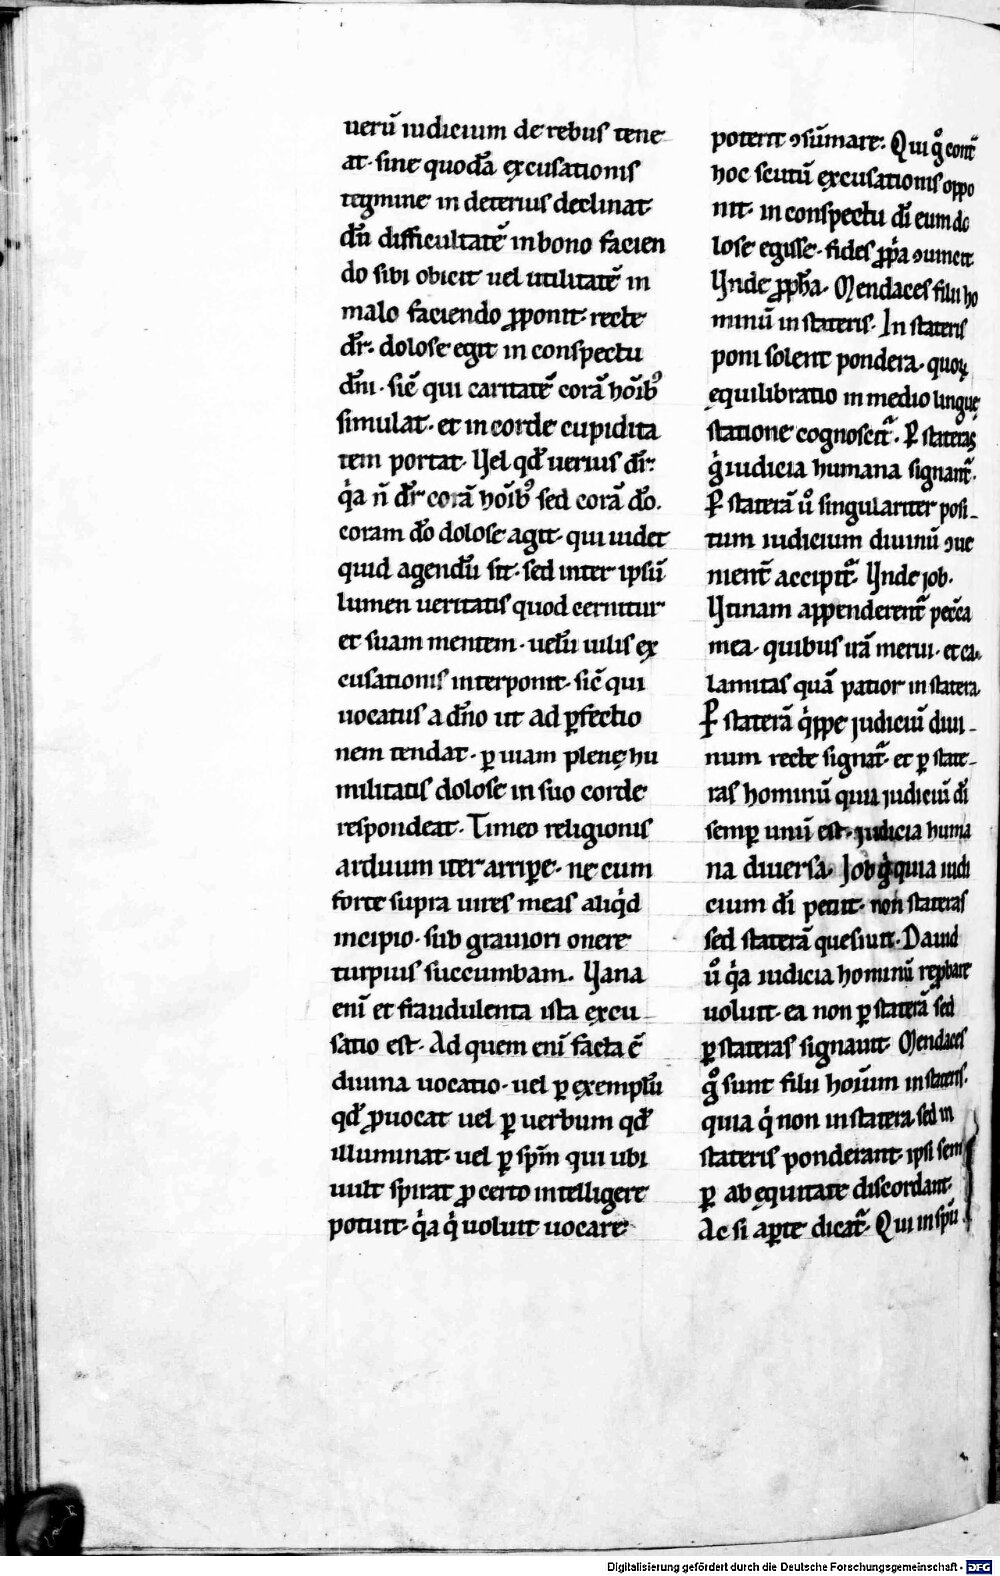 uerū iudicium de rebus tene
at· sine quodā excusationis
tegmine in deterius declinat·
dū difficultatē in bono facien
do sibi obicit uel utilitatē in
malo faciendo ꝓponit· recte
dr̄· dolose egit in conspectu
dn̄i· sic̄ qui caritatē corā hoībꝰ
simulat· et in corde cupidita
tem portat· Vel qd̄ uerius dr̄·
qͥa n̄ dr̄ corā hoībꝰ sed corā dō·
coram dō dolose agit· qui uidet
quid agendū sit· sed inter ipsū
lumen ueritatis quod cernitur
et suam mentem· uelū uilis ex
cusationis interponit· sic̄ qui
uocatus a dn̄o ut ad ꝑfectio
nem tendat· ꝑ uiam plenę hu
militatis dolose in suo corde
respondeat· Timeo religionis
arduum iter arripe· ne cum
forte supra uires meas aliqͥd
incipio· sub grauiori onere
turpius succumbam· Vana
enī et fraudulenta ista excu
satio est· Ad quem enī facta ē
diuina uocatio· uel ꝑ exemplū
qd̄ ꝓuocat uel ꝑ uerbum qd̄
illuminat· uel ꝑ spm̄ qui ubi
uult spirat ꝓ certo intelligere
potuit· qͥa qͥ uoluit uocare·
poterit ꝯsūmare· Qui gͦ contͣ
hoc scutū excusationis oppo
nit· in conspectu dī eum do
lose egisse· fides ꝓpͥa ꝯuincit·
Vnde ꝓph̄a· Mendaces filii ho
minū in stateris· In stateris
poni solent pondera· quoꝝ
equilibratio in medio linguę
statione cognoscit᷑· Ꝑ stateras
gͥ iudicia humana signant᷑·
Ꝑ staterā uͦ singulariter posi-
tum iudicium diuinū ꝯue
nient᷑ accipit᷑· Vnde job·
Vtinam appenderent᷑ pecc̄a
mea· quibus irā merui· et ca
lamitas quā patior in statera·
Ꝑ staterā qͥppe judiciū diui-
num recte signat᷑· et ꝑ state-
ras hominū quia judiciū dī
semꝑ unū est· judicia huma
na diuersa· Job gͥ quia iudi
cium dī petiit· non stateras
sed staterā quesiuit· Dauid
uͦ qͥa iudicia hominū reꝓbare
uoluit· ea non ꝑ staterā sed
ꝑ stateras signauit· Mendaces
gͦ sunt filii hoīum in stateris·
quia qͥ non in statera sed in
stateris ponderant· ipsi sem
ꝑ ab equitate discordant·
Ac si aꝑte dicat᷑· Qui in spū
Digitalisierung gefördert durch die Deutsche Forschungsgemeinschaft - DFG